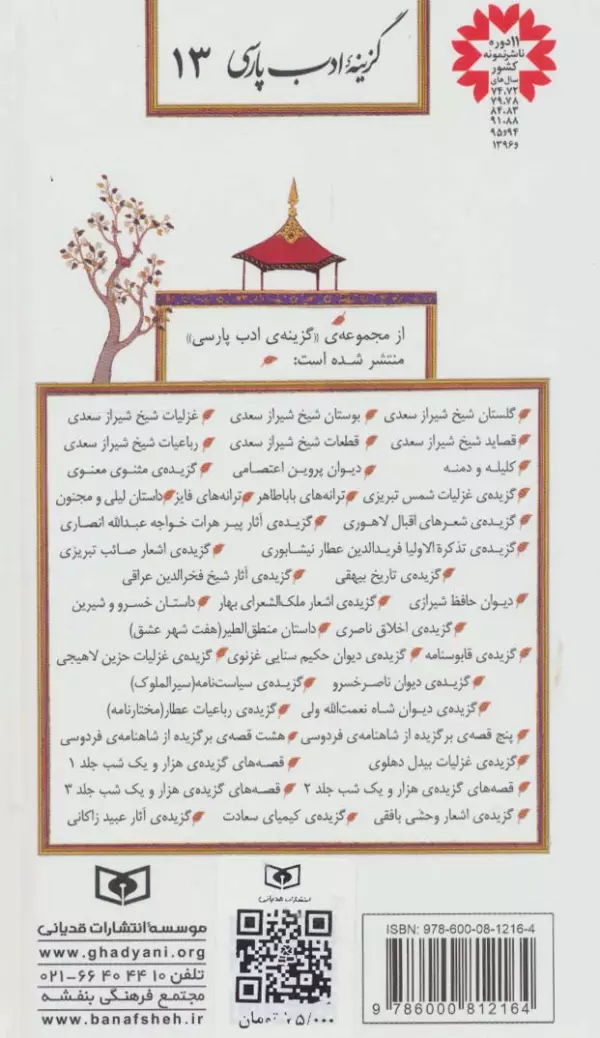 گزینهٔ ادب پارسی ۱۳
۱۱دوره
ناشر نمونه
کشور
سال‌های
۷۴،۷۲
۷۹،۷۸
۸۴،۸۳
۹۱،۸۸
۹۴و۹۵
و۱۳۹۶
از مجموعه‌ی «گزینه‌ی ادب پارسی»
منتشر شده است:
گلستان شیخ شیراز سعدی بوستان شیخ شیراز سعدی غزلیات شیخ شیراز سعدی
قصاید شیخ شیراز سعدی قطعات شیخ شیراز سعدی رباعیات شیخ شیراز سعدی
کلیله و دمنه دیوان پروین اعتصامی گزیده‌ی مثنوی معنوی
گزیده‌ی غزلیات شمس تبریزی ترانه‌های باباطاهر ترانه‌های فایز داستان لیلی و مجنون
گزیده‌ی شعرهای اقبال لاهوری گزیده‌ی آثار پیر هرات خواجه عبدالله انصاری
گزیده‌ی تذکرة الاولیا فریدالدین عطار نیشابوری گزیده‌ی اشعار صائب تبریزی
گزیده‌ی تاریخ بیهقی گزیده‌ی آثار شیخ فخرالدین عراقی
دیوان حافظ شیرازی گزیده‌ی اشعار ملک‌الشعرای بهار داستان خسرو و شیرین
گزیده‌ی اخلاق ناصری داستان منطق‌الطیر(هفت شهر عشق)
گزیده‌ی قابوسنامه گزیده‌ی دیوان حکیم سنایی غزنوی گزیده‌ی غزلیات حزین لاهیجی
گزیده‌ی دیوان ناصرخسرو گزیده‌ی سیاست‌نامه(سیرالملوک)
گزیده‌ی دیوان شاه نعمت‌الله ولی گزیده‌ی رباعیات عطار(مختارنامه)
پنج قصه‌ی برگزیده از شاهنامه‌ی فردوسی هشت قصه‌ی برگزیده از شاهنامه‌ی فردوسی
گزیده‌ی غزلیات بیدل دهلوی قصه‌های گزیده‌ی هزار و یک شب جلد ۱
قصه‌های گزیده‌ی هزار و یک شب جلد ۲ قصه‌های گزیده‌ی هزار و یک شب جلد ۳
گزیده‌ی اشعار وحشی بافقی گزیده‌ی کیمیای سعادت گزیده‌ی آثار عبید زاکانی
موسسه انتشارات قدیانی
www.ghadyani.org
تلفن ۱۰ ۴۴ ۴۰ ۶۶-۰۲۱
مجتمع فرهنگی بنفشه
www.banafsheh.ir
انتشارات قدیانی
۵/۰۰۰ تومان
ISBN: 978-600-08-1216-4
9 786000 812164